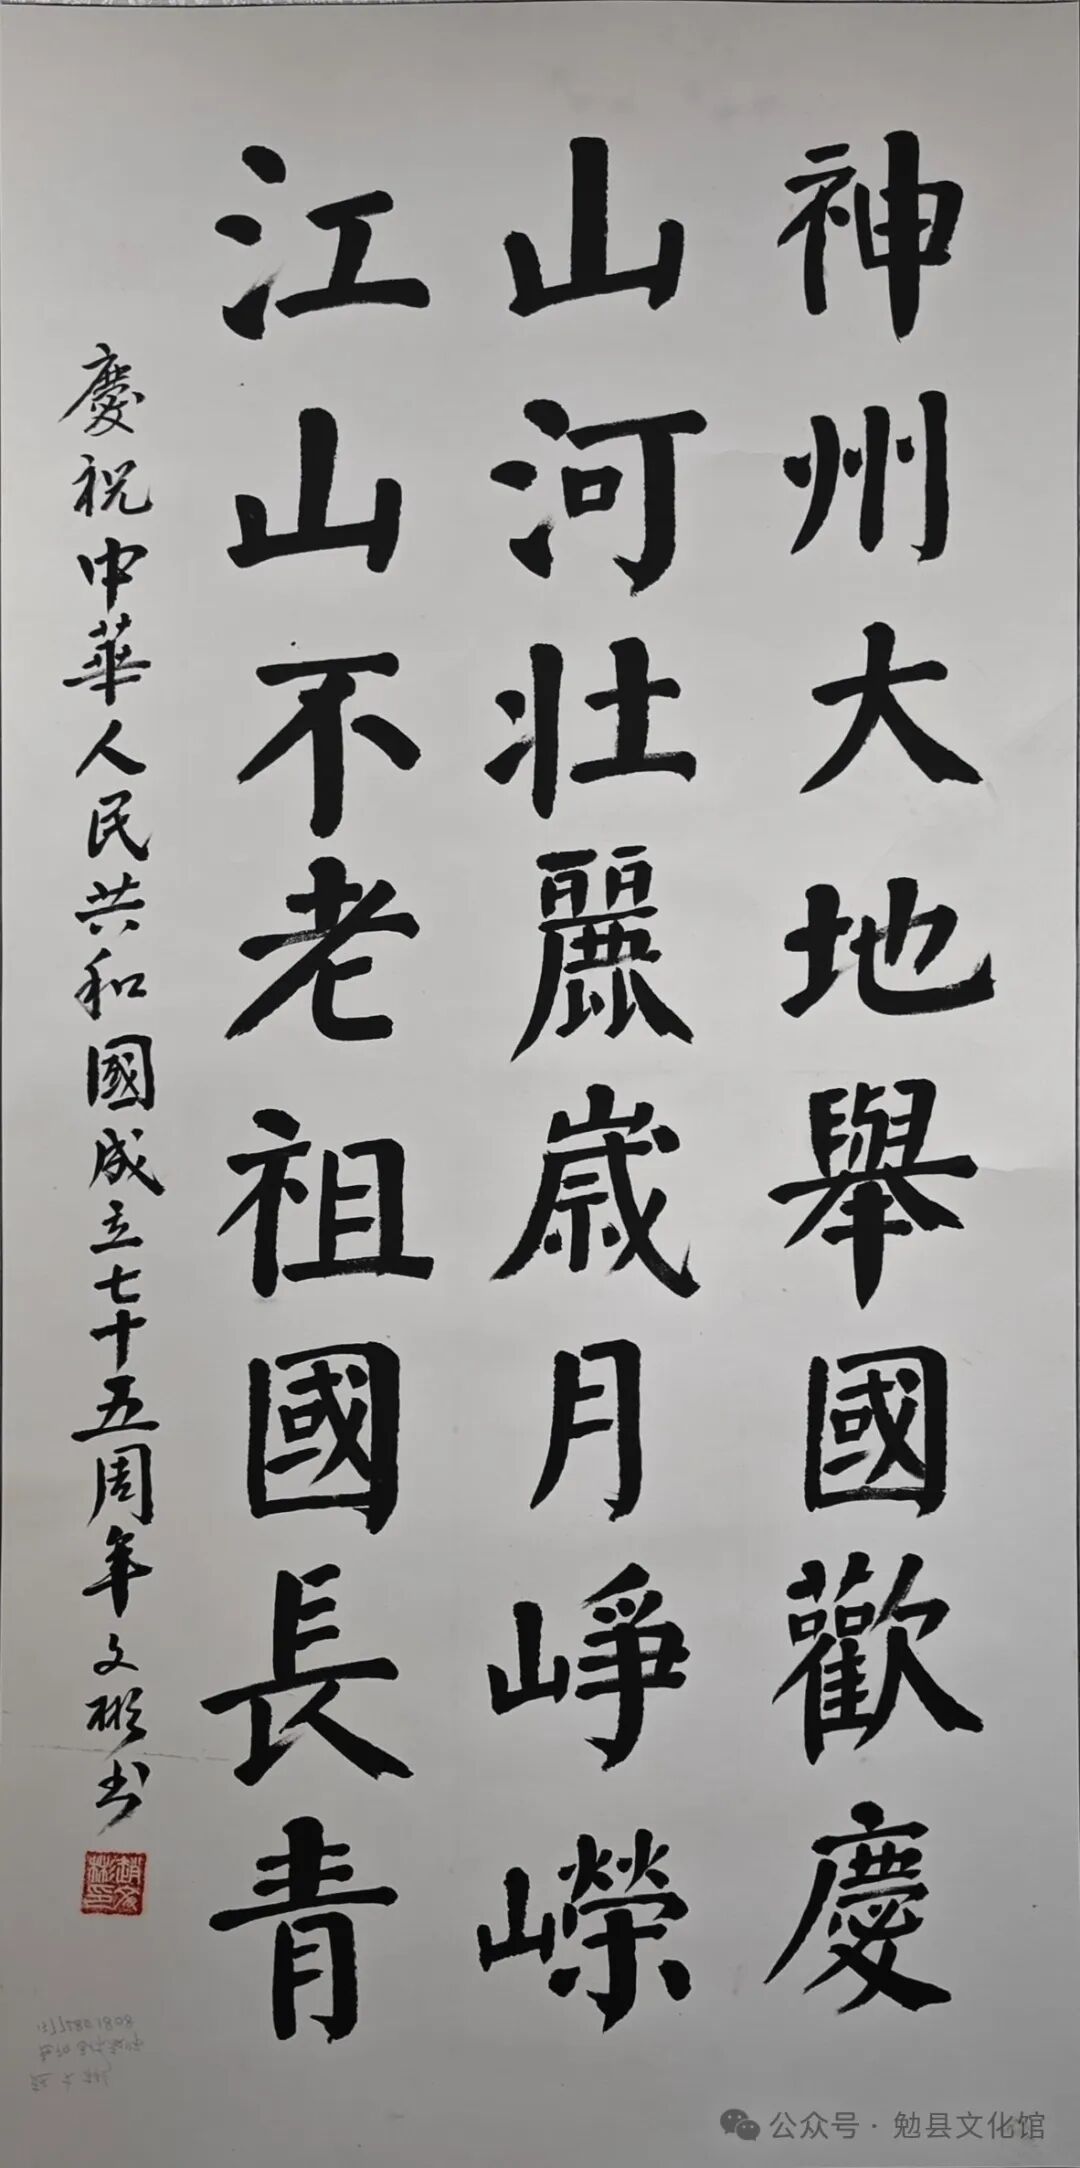 神州大地舉國歡慶
山河壯麗歲月崢嶸
江山不老祖國長青
慶祝中華人民共和國成立七十五周年文彬书
公众号·勉县文化馆